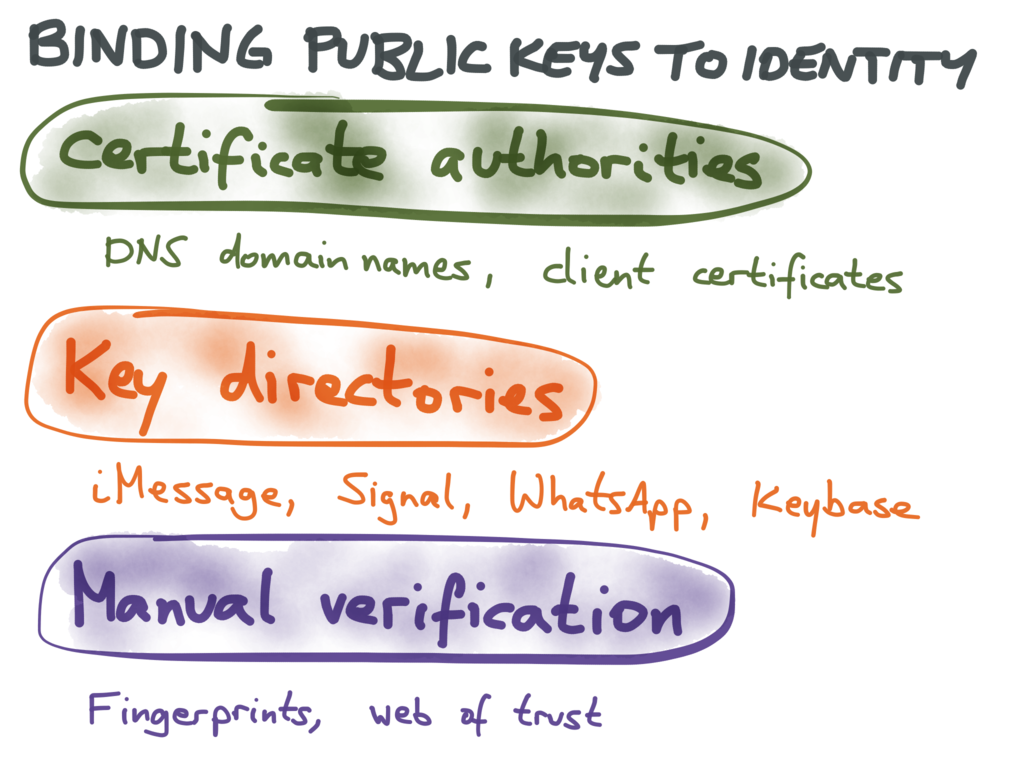 BINDING PUBLIC KEYS TO IDENTITY
Certificate authorities
DNS domain names, client certificates
Key directories
iMessage, Signal, WhatsApp, Keybase
Manual verification
Fingerprints, web of trust